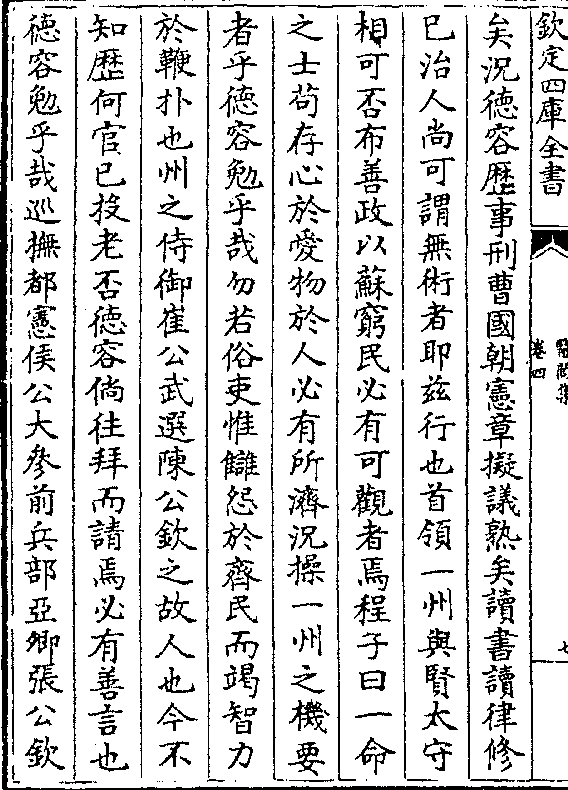 欽定四庫全書
醫閭集
卷四
七
矣況德容歷事刑曹國朝憲章擬議熟矣讀書讀律修
已治人尚可謂無術者耶兹行也首領一州與賢太守
相可否布善政以蘇窮民必有可觀者焉程子曰一命
之士苟存心於愛物於人必有所濟況操一州之機要
者乎德容勉乎哉勿若俗吏惟讎怨於齊民而竭智力
於鞭扑也州之侍御崔公武選陳公欽之故人也今不
知歷何官已投老否德容倘往拜而請焉必有善言也
德容勉乎哉巡撫都憲侯公大參前兵部亞卿張公欽